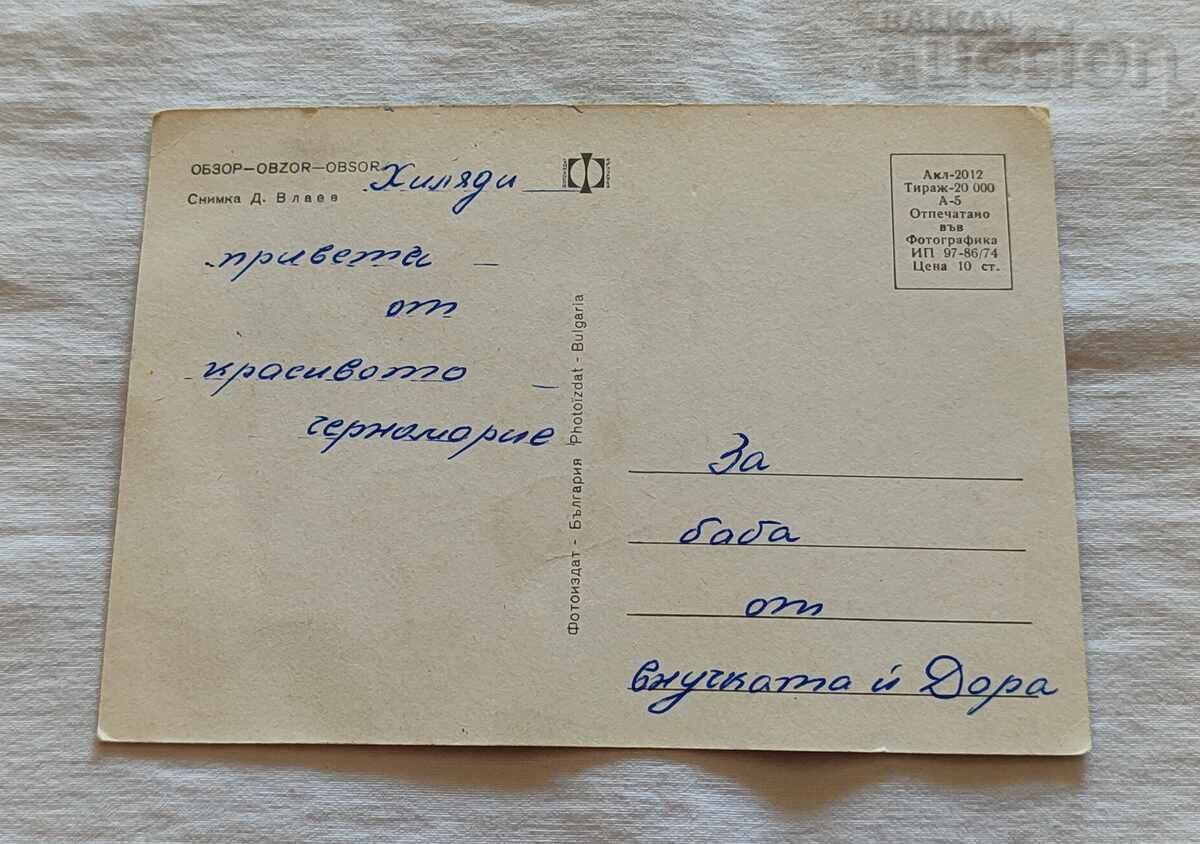 BALKAN
auction
ОБЗОР—OBZOR—OBSOR
Снимка Д. Влаев
Хиляди
привети
от
красивото
черноморие
Фотоиздат - България Photoizdat - Bulgaria
Акл-2012
Тираж-20 000
А-5
Отпечатано
във
Фотографика
ИП 97-86/74
Цена 10 ст.
За
баба
от
внучката ѝ Дора